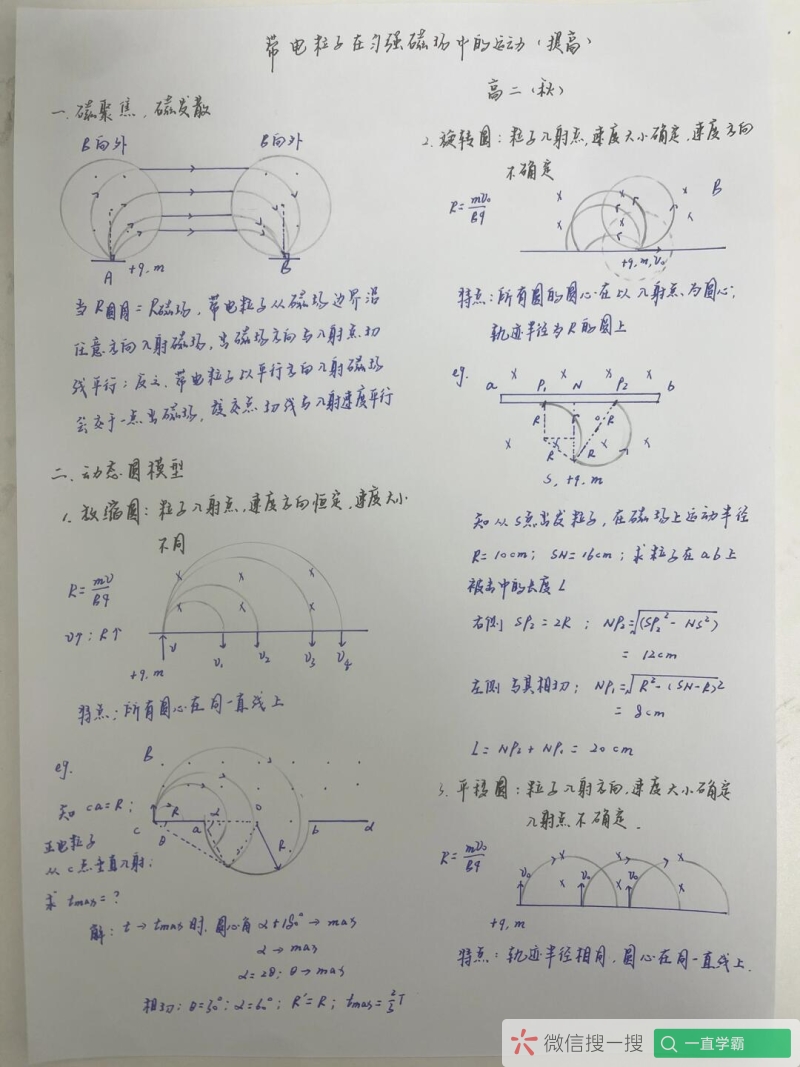 带电粒子在匀强磁场中的运动(提高)
高二(秋)
一.磁聚焦,磁发散
B向外
B向外
A
+q.m
B
当R圆周=R磁场,带电粒子从磁场边界沿
任意方向入射磁场,出磁场方向与入射点切
线平行;反之,带电粒子以平行方向入射磁场
会交于一点出磁场,该交点切线与入射速度平行
二.动态圆模型
1.放缩圆:粒子入射点,速度方向恒定,速度大小
不同
R=mv/Bq
v↑:R↑
v
v₁
v₂
v₃
v₄
+q.m
特点:所有圆心在同一直线上
eg.
B
知ca=R;
正电粒子
从c点垂直入射.
求tmax=?
c
R
θ
a
α
O
R
b
d
解:t→tmax时,圆心角α+180°→max
α→max
α=2θ:θ→max
相切:θ=30°:α=60°; R'=R; tmax=2/3T
2.旋转圆:粒子入射点,速度大小确定,速度方向
不确定
R=mv₀/Bq
B
+q.m,v₀
特点:所有圆的圆心在以入射点为圆心;
轨迹半径为R的圆上
eg.
a
P₁
N
P₂
b
R
O
R
R
R
S,+q.m
知从S点出发粒子,在磁场上运动半径
R=10cm; SN=16cm;求粒子在ab上
被击中的长度L
右侧 SP₂=2R ; NP₂=√(SP₂²-NS²)
=12cm
左侧 与其相切; NP₁=√R²-(SN-R)²
=8cm
L=NP₂+NP₁=20cm
3.平移圆:粒子入射方向,速度大小确定
入射点不确定.
R=mv₀/Bq
v₀
v₀
v₀
+q.m
特点:轨迹半径相同,圆心在同一直线上.
微信搜一搜
一直学霸